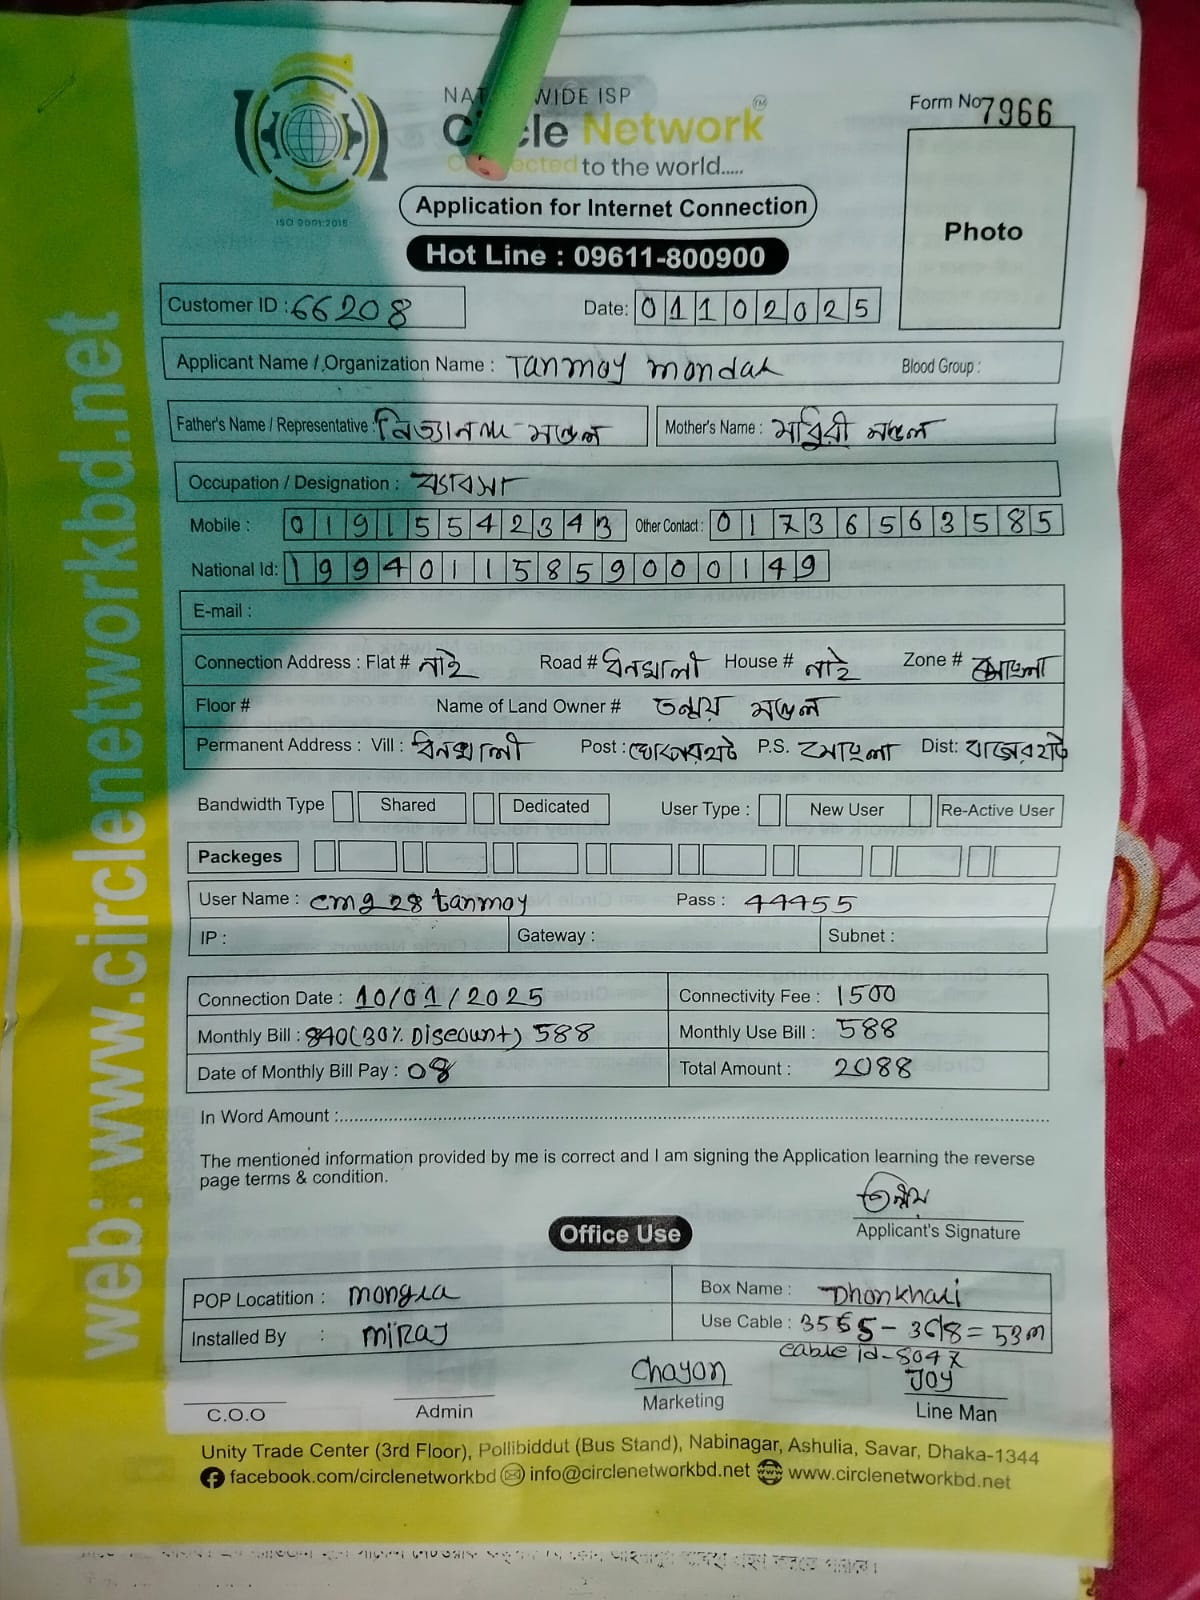 NATIONWIDE ISP
Circle Network TM
Connected to the world.....
ISO 9001:2015
Form No 7966
Photo
Application for Internet Connection
Hot Line : 09611-800900
Customer ID : 66208
Date: 01102025
Applicant Name / Organization Name : Tanmoy mondal Blood Group :
Father's Name / Representative : নিত্যানন্দ মণ্ডল Mother's Name : মাধুরী মণ্ডল
Occupation / Designation : ব্যাবসা
Mobile : 01915542343 Other Contact : 01736563585
National Id: 19940115859000149
E-mail :
Connection Address : Flat # নাই Road # ধনখালী House # নাই Zone # মোংলা
Floor # Name of Land Owner # তন্ময় মণ্ডল
Permanent Address : Vill : ধনখালী Post : P.S. মোংলা Dist: বাগেরহাট
Bandwidth Type Shared Dedicated User Type : New User Re-Active User
Packeges
User Name : cmg28tanmoy Pass : 44455
IP : Gateway : Subnet :
Connection Date : 10/01/2025 Connectivity Fee : 1500
Monthly Bill : 840(30% Discount) 588 Monthly Use Bill : 588
Date of Monthly Bill Pay : 08 Total Amount : 2088
In Word Amount :
The mentioned information provided by me is correct and I am signing the Application learning the reverse
page terms & condition.
তন্ময়
Applicant's Signature
Office Use
POP Locatition : mongla Box Name : Dhankhali
Installed By : MIRAJ Use Cable : 3565 - 3618 = 53m
cable id-8047
Chayon JOY
C.O.O Admin Marketing Line Man
Unity Trade Center (3rd Floor), Pollibiddut (Bus Stand), Nabinagar, Ashulia, Savar, Dhaka-1344
facebook.com/circlenetworkbd info@circlenetworkbd.net www.circlenetworkbd.net
web: www.circlenetworkbd.net